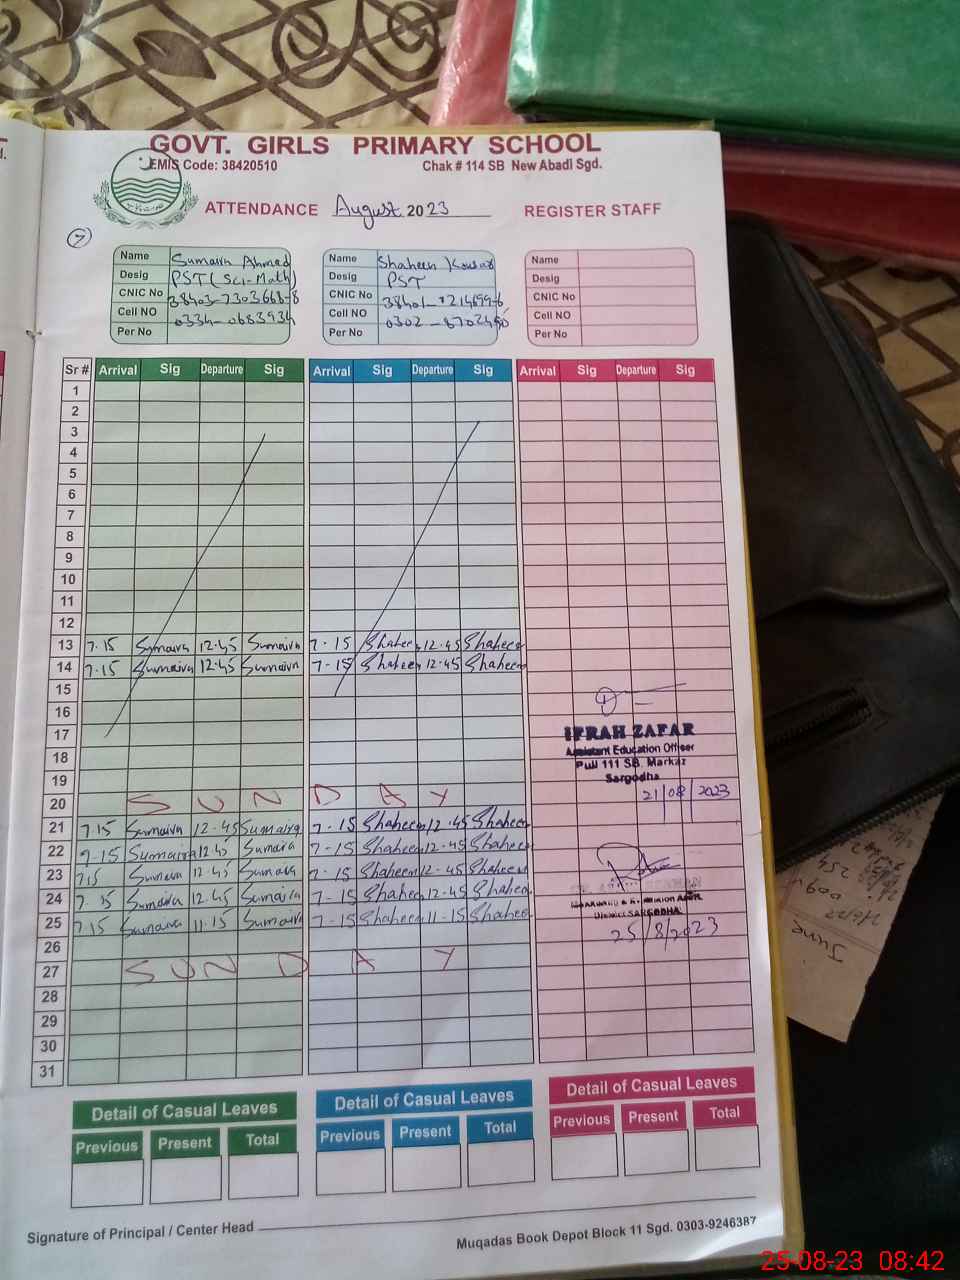 GOVT. GIRLS PRIMARY SCHOOL
EMIS Code: 38420510 Chak # 114 SB New Abadi Sgd.
ATTENDANCE August 2023 REGISTER STAFF
7
Name Sumaira Ahmed Name Shaheen Kousar Name
Desig PST (Sci-Math) Desig PST Desig
CNIC No 38403-7303668-8 CNIC No CNIC No
Cell NO 0334-0683934 Cell NO Cell NO
Per No Per No Per No
Sr # Arrival Sig Departure Sig Arrival Sig Departure Sig Arrival Sig Departure Sig
1
2
3
4
5
6
7
8
9
10
11
12
13 7.15 Sumaira 12.45 Sumaira 7-15 Shaheen 12.45 Shaheen
14 7.15 Sumaira 12.45 Sumaira 7-15 Shaheen 12.45 Shaheen
15
16
17
18
19
IFRAH ZAFAR
Assistant Education Officer
Pull 111 SB. Markaz
Sargodha
21/08/2023
20 SUNDAY
21 7.15 Sumaira 12-45 Sumaira 7-15 Shaheen 12.45 Shaheen
22 7-15 Sumaira 12.45 Sumaira 7-15 Shaheen 12.45 Shaheen
23 7.15 Sumaira 12.45 Sumaira 7-15 Shaheen 12-45 Shaheen
24 7.15 Sumaira 12.45 Sumaira 7-15 Shaheen 12-45 Shaheen
25 7.15 Sumaira 11.15 Sumaira 7-15 Shaheen 11-15 Shaheen
District SARGODHA.
25/8/2023
26
27 SUNDAY
28
29
30
31
Detail of Casual Leaves Detail of Casual Leaves Detail of Casual Leaves
Previous Present Total Previous Present Total Previous Present Total
Signature of Principal / Center Head
Muqadas Book Depot Block 11 Sgd. 0303-9246387
June
25-08-23 08:42